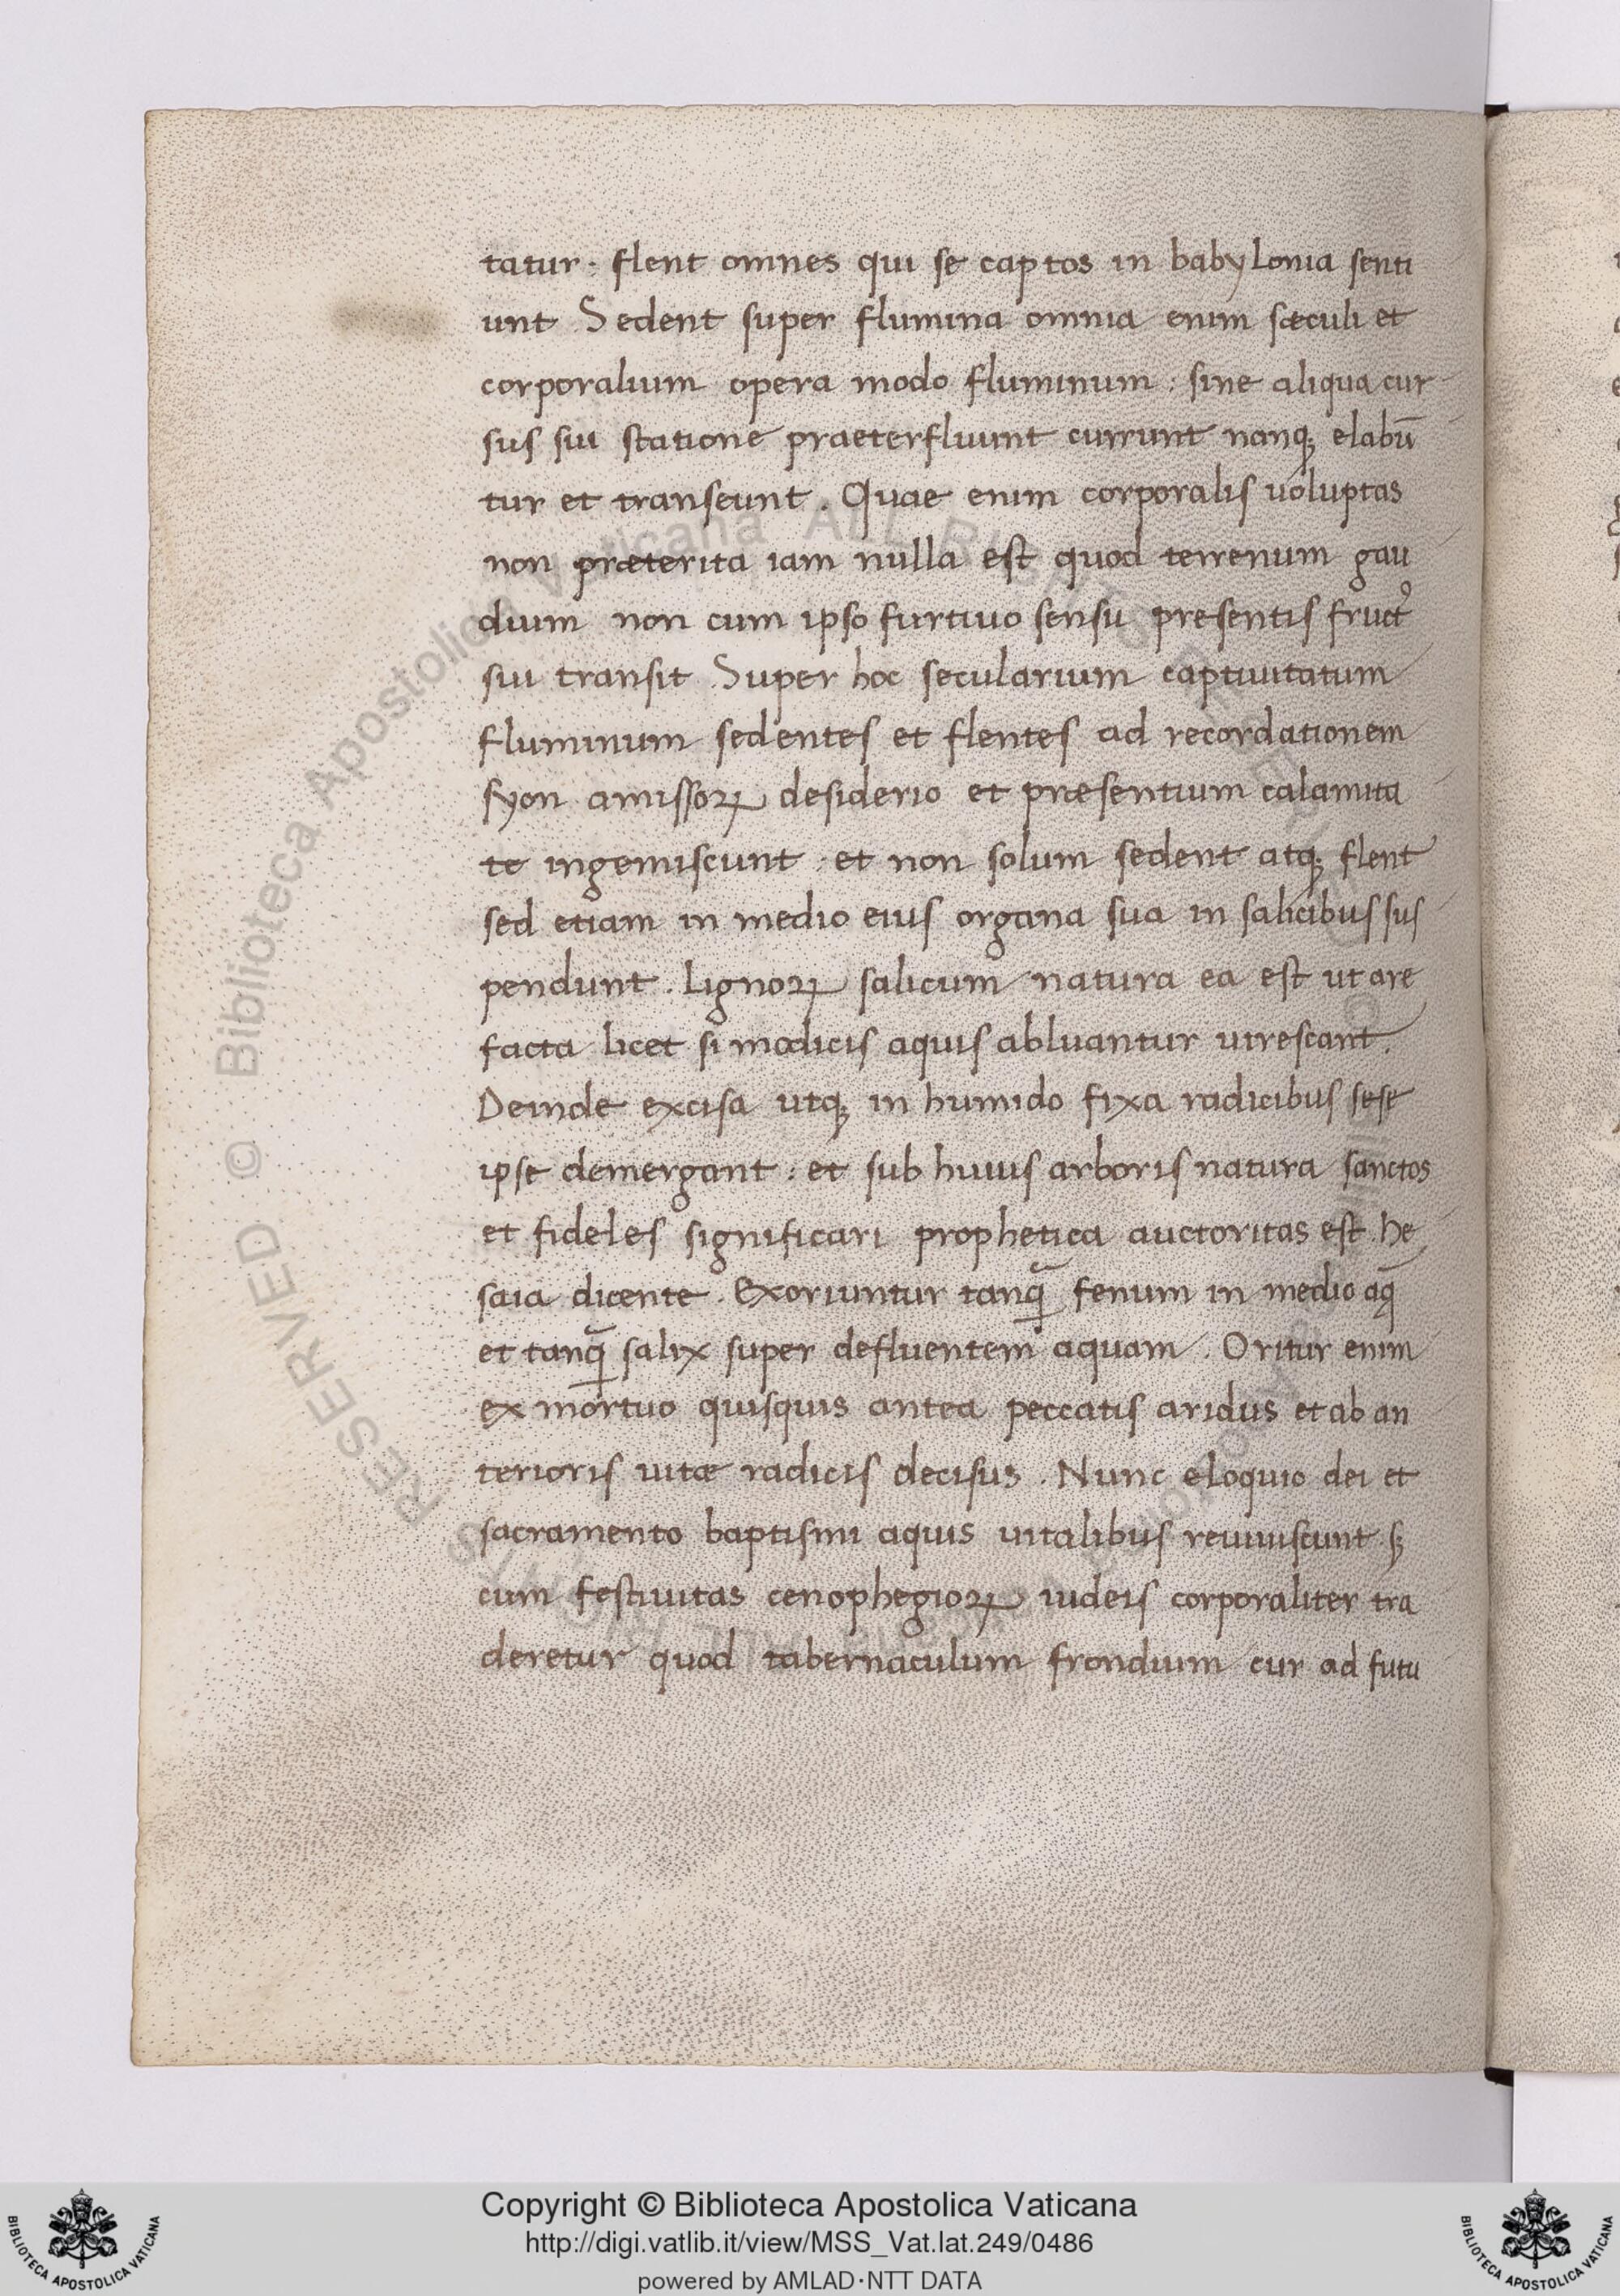 tatur · flent omnes qui se captos in babylonia senti
unt Sedent super flumina omnia enim sæculi et
corporalium opera modo fluminum : sine aliqua cur
sus sui statione praeterfluunt currunt nanq; elabū
tur et transeunt . Quae enim corporalis uoluptas
non præterita iam nulla est quod terrenum gau
dium non cum ipso furtiuo sensu presentis fructꝰ
sui transit Super hoc secularium captiuitatum
fluminum sedentes et flentes ad recordationem
syon amissoꝝ desiderio et præsentium calamita
te ingemiscunt · et non solum sedent atq; flent
sed etiam in medio eius organa sua in salicibus sus
pendunt . Lignoꝝ salicum natura ea est ut are
facta licet si modicis aquis abluantur uirescant .
Deinde excisa utq; in humido fixa radicibus sese
ipse demergant : et sub huius arboris natura sanctos
et fideles significari prophetica auctoritas est he
saia dicente . Exoriuntur tanq̄ fenum in medio aq̄
et tanq̄ salix super defluentem aquam . Oritur enim
ex mortuo quisquis antea peccatis aridus et ab an
terioris uitæ radicis decisus . Nunc eloquio dei et
sacramento baptismi aquis uitalibus reuiuiscunt sꝫ
cum festiuitas cenophegioꝝ iudeis corporaliter tra
deretur quod tabernaculum frondium cur ad futu
Biblioteca Apostolica Vaticana ALL RIGHTS RESERVED ©
Copyright © Biblioteca Apostolica Vaticana
http://digi.vatlib.it/view/MSS_Vat.lat.249/0486
powered by AMLAD·NTT DATA
BIBLIOTECA APOSTOLICA VATICANA
BIBLIOTECA APOSTOLICA VATICANA